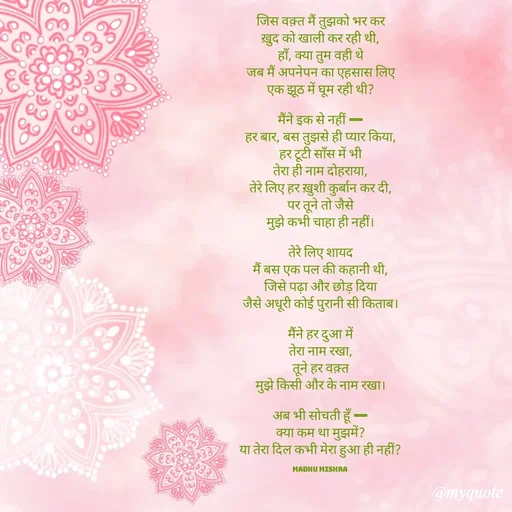 जिस वक़्त मैं तुझको भर कर
ख़ुद को खाली कर रही थी,
हाँ, क्या तुम वही थे
जब मैं अपनेपन का एहसास लिए
एक झूठ में घूम रही थी?
मैंने इक से नहीं —
हर बार, बस तुझसे ही प्यार किया,
हर टूटी साँस में भी
तेरा ही नाम दोहराया,
तेरे लिए हर ख़ुशी कुर्बान कर दी,
पर तूने तो जैसे
मुझे कभी चाहा ही नहीं।
तेरे लिए शायद
मैं बस एक पल की कहानी थी,
जिसे पढ़ा और छोड़ दिया
जैसे अधूरी कोई पुरानी सी किताब।
मैंने हर दुआ में
तेरा नाम रखा,
तूने हर वक़्त
मुझे किसी और के नाम रखा।
अब भी सोचती हूँ —
क्या कम था मुझमें?
या तेरा दिल कभी मेरा हुआ ही नहीं?
MADHU MISHRA
@myquote